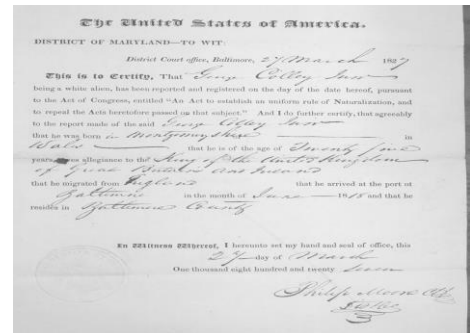 The United States of America.
DISTRICT OF MARYLAND—TO WIT:
District Court office, Baltimore, 27 March 1827
This is to Certify, That George Colley
being a white alien, has been reported and registered on the day of the date hereof, pursuant
to the Act of Congress, entitled "An Act to establish an uniform rule of Naturalization, and
to repeal the Acts heretofore passed on that subject." And I do further certify, that agreeably
to the report made of the said George Colley
that he was born in Montgomeryshire in
Wales that he is of the age of Twenty five
years owes allegiance to the King of the United Kingdom
of Great Britain and Ireland
that he migrated from England that he arrived at the port at
Baltimore in the month of June 1818 and that he
resides in Baltimore County
In Witness Whereof, I hereunto set my hand and seal of office, this
27 day of March
One thousand eight hundred and twenty seven
Philip Moore Clk